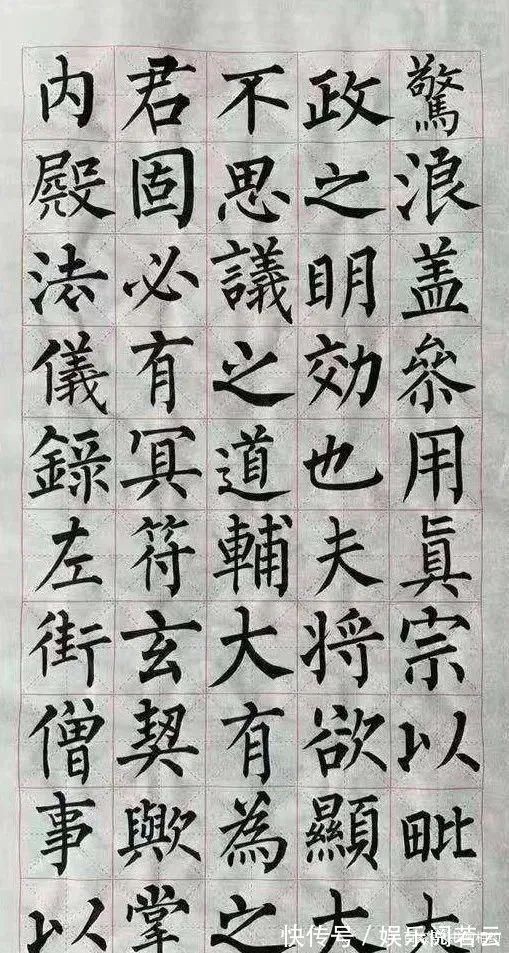 驚浪盖叅用眞宗以毗大
政之明効也夫将欲顯大
不思議之道輔大有為之
君固必有冥符玄契歟掌
内殿法儀録左街僧事以
快传号／娱乐阅若云